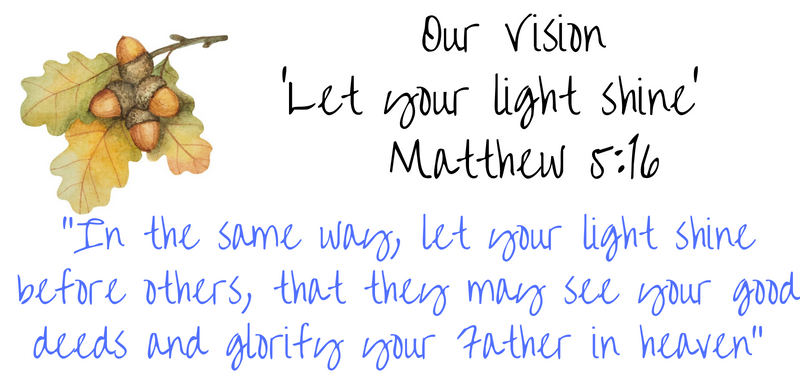 Our Vision
'Let your light shine'
Matthew 5:16
"In the same way, let your light shine
before others, that they may see your good
deeds and glorify your Father in heaven"